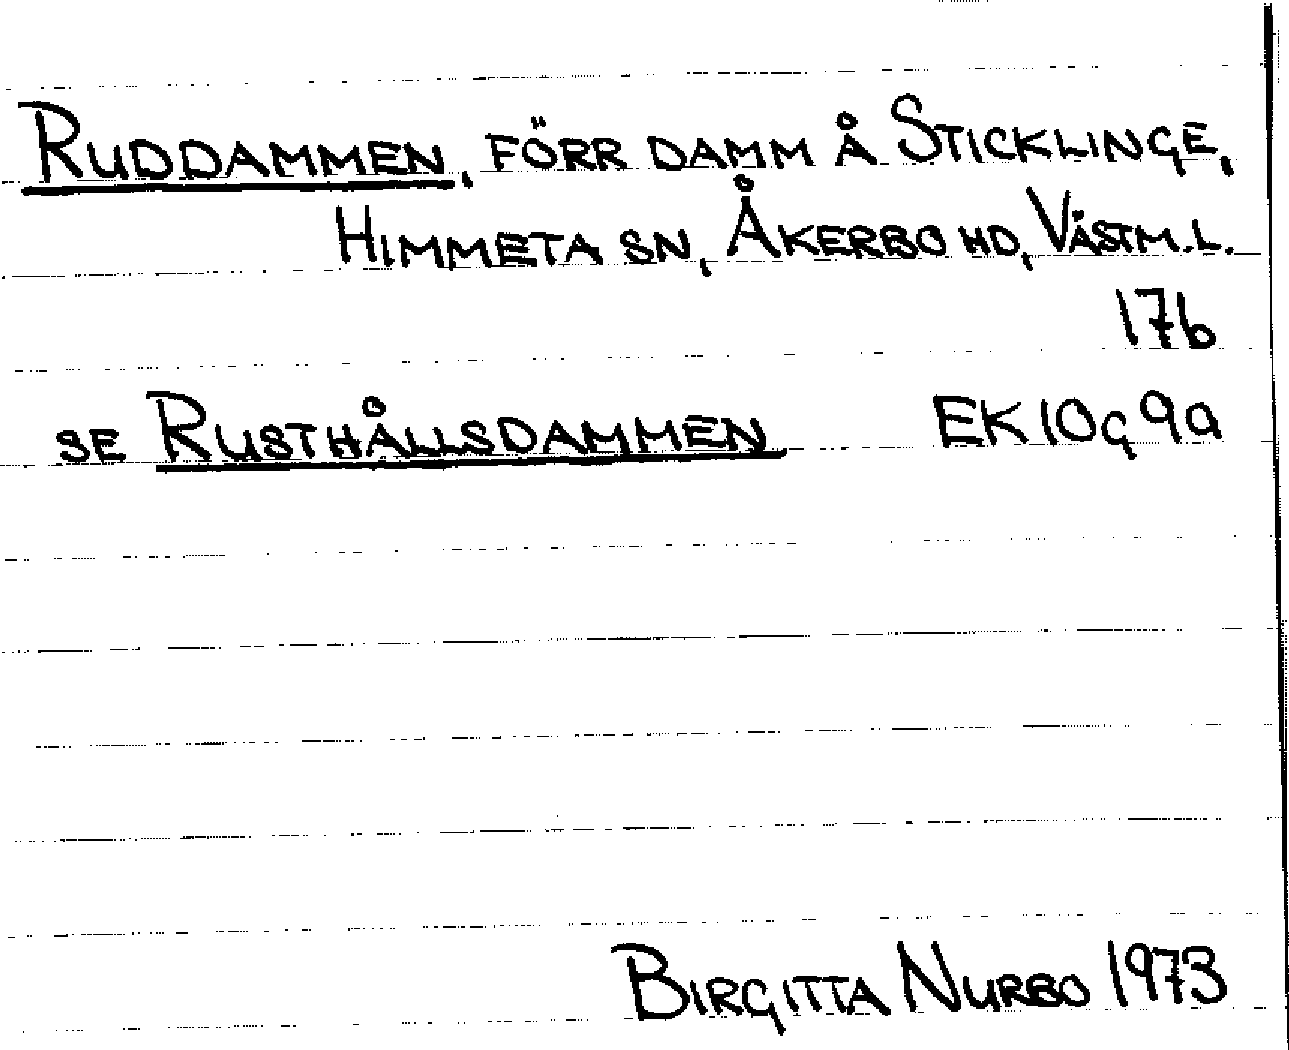 RUDDAMMEN, FÖRR DAMM Å STICKLINGE,
HIMMETA SN, ÅKERBO HD, VÄSTM.L.
176
SE RUSTHÅLLSDAMMEN EK 10g 9a
BIRGITTA NURBO 1973